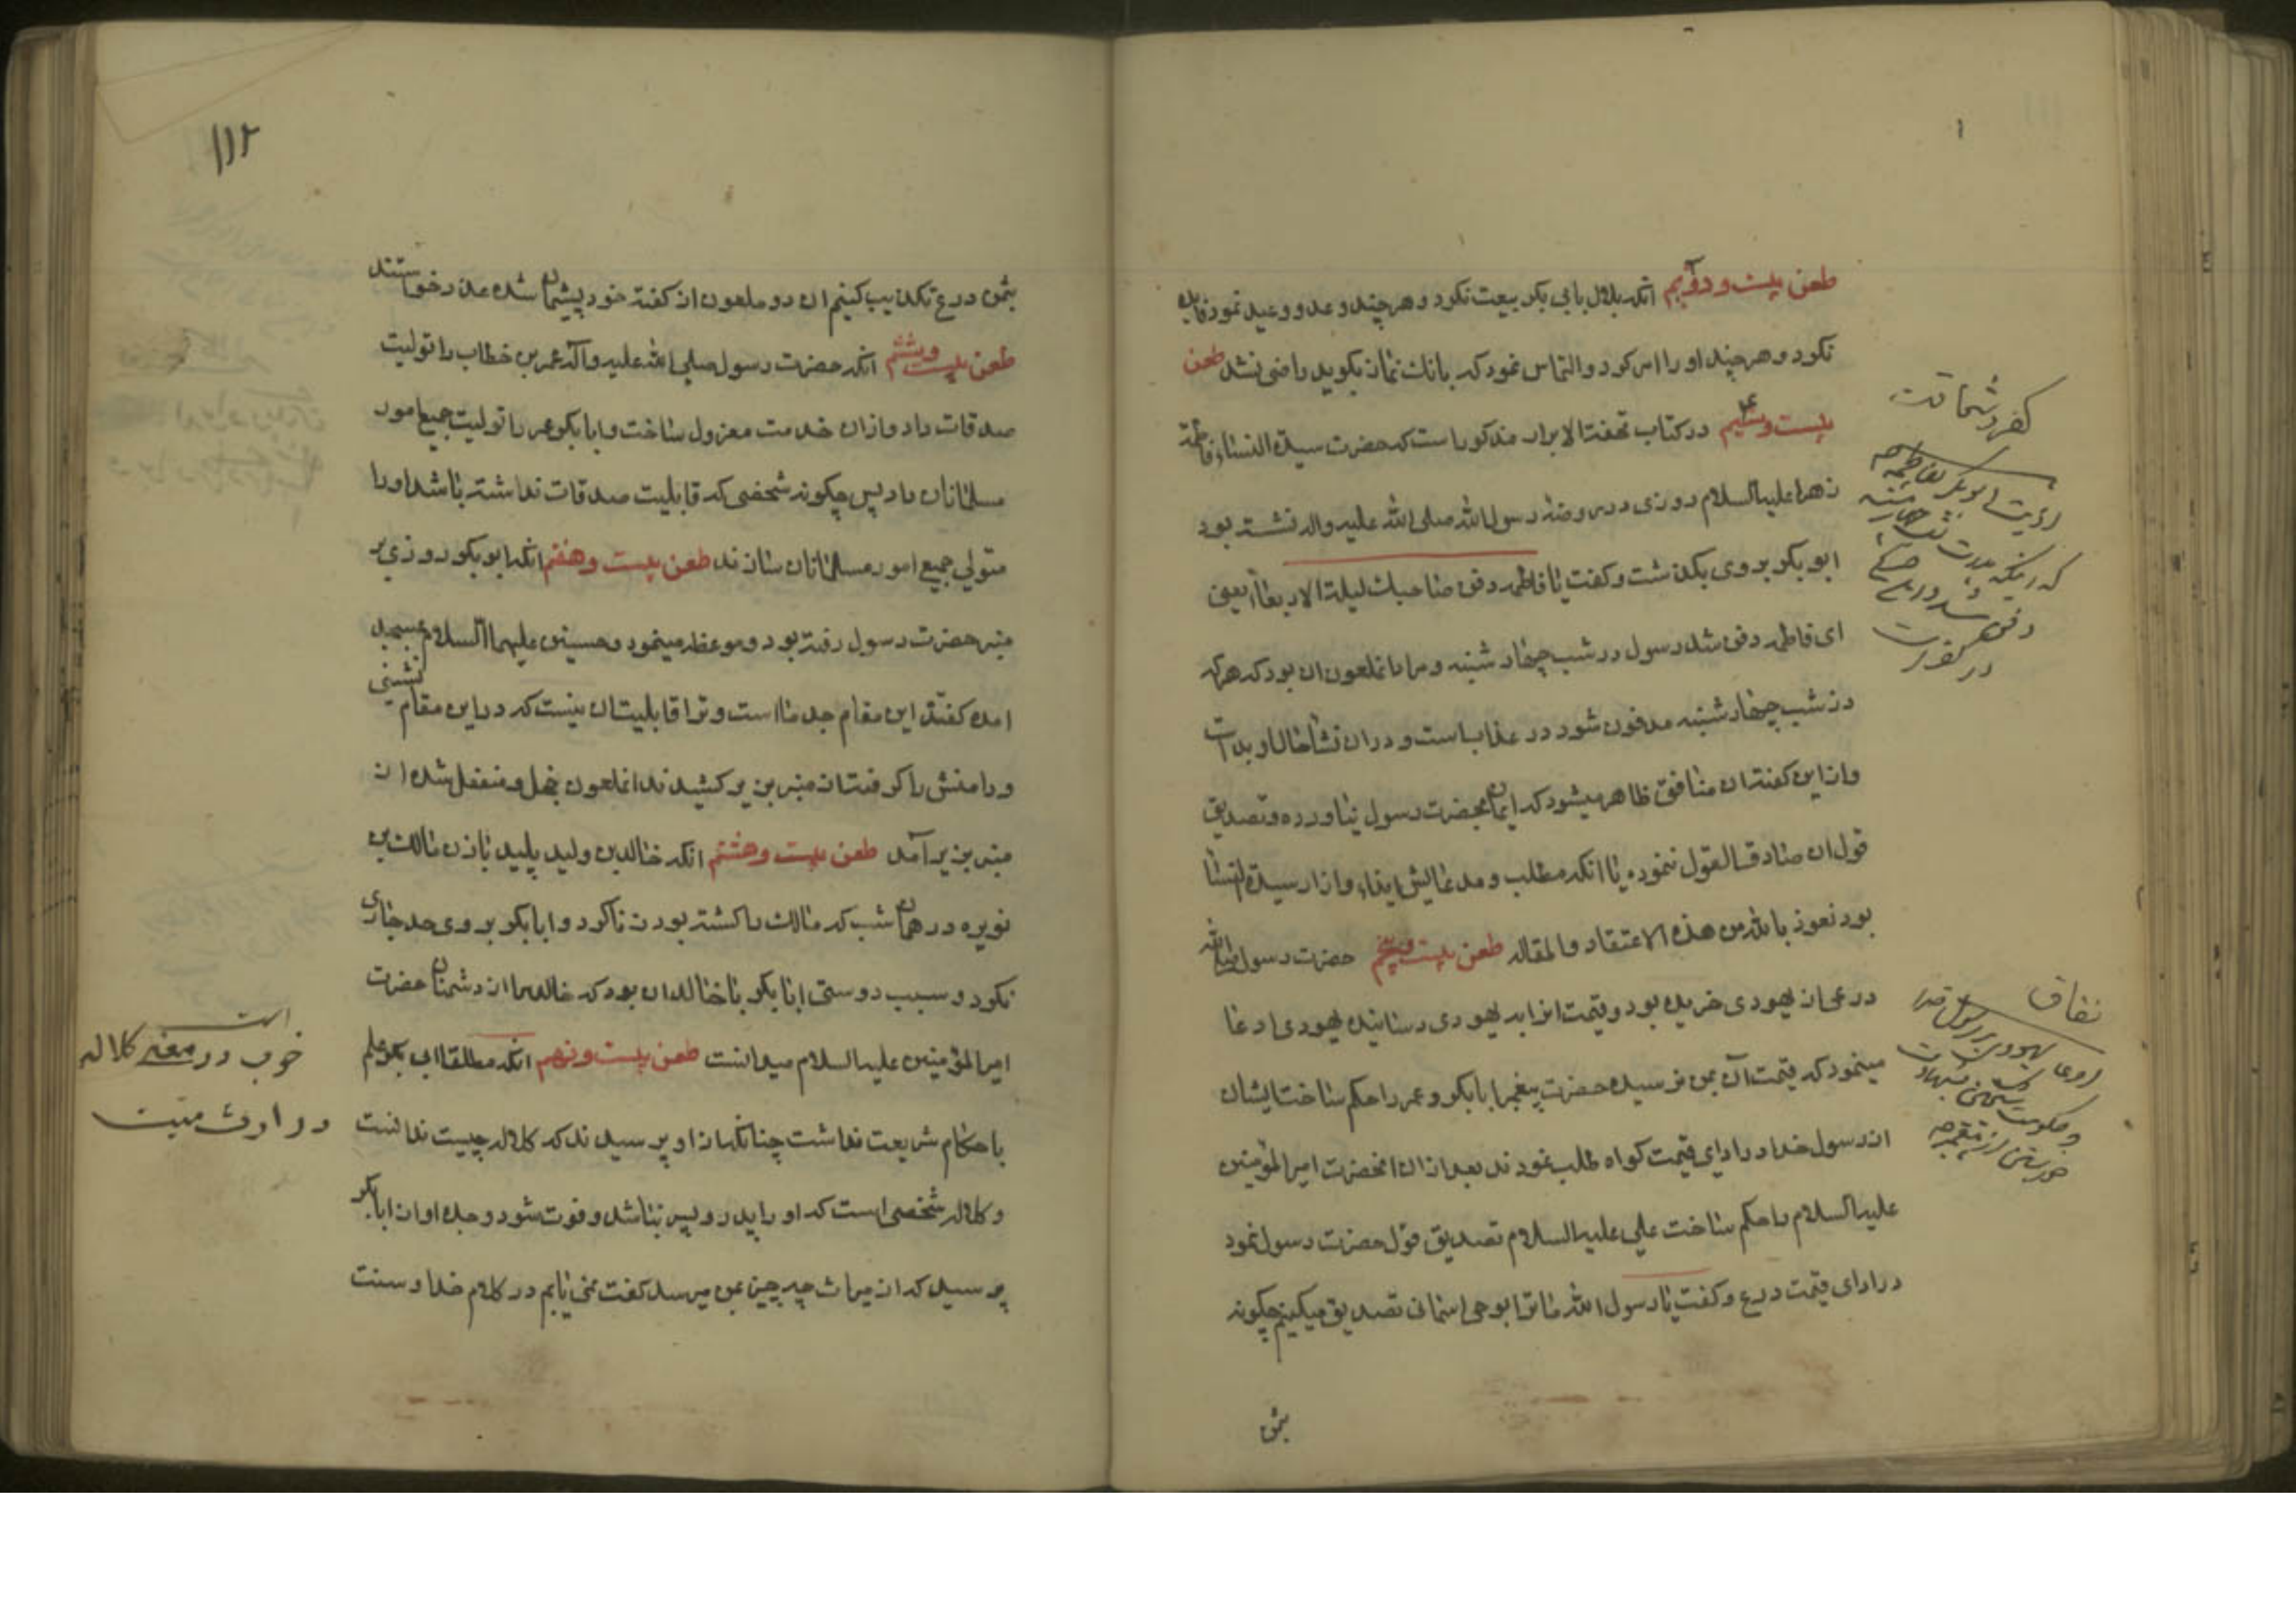 طعن بیست و دویم انکه بلال بابی بکر بیعت نکرد و هر چند وعد و وعید نمود فایده
نکرد و هر چند او را امر کرد و التماس نمود که بانک نماز بکوید راضی نشد طعن
بیست و سیم در کتاب تحفة الابرار مذکور است که حضرت سیدة النساء فاطمة
زهرا علیها السلام روزی در روضهٔ رسول الله صلی الله علیه واله نشسته بود
ابو بکر بر وی بکذشت و کفت یا فاطمه دفن صاحبک لیلة الاربعاء یعنی
ای فاطمه دفن شد رسول در شب چهار شنبه و مراد انملعون ان بود که هر که
در شب چهار شنبه مدفون شود در عذابست و در ان نشاء حال او بد است
و از این کفتن ان منافق ظاهر میشود که ایمان بحضرت رسول نیاورده و تصدیق
قول ان صادق القول ننموده یا انکه مطلب و مدعایش ایذاء و ازار سیدة النسا
بود نعوذ بالله من هذه الاعتقاد والمقاله طعن بیست و پنجم حضرت رسول
درعی از یهودی خریده بود و قیمت انرا بد یهودی رسانیده یهودی ادعا
مینمود که قیمت آن بمن نرسیده حضرت پیغمبر ابابکر و عمر را حکم ساخت ایشان
از رسول خدا در ادای قیمت کواه طلب نمودند بعد از ان انحضرت امیر المؤمنین
علیه السلام را حکم ساخت علی علیه السلام تصدیق قول حضرت رسول نمود
در ادای قیمت درع و کفت یا رسول الله ما ترا بوحی اسمانی تصدیق میکنیم چکونه
بثمن
کفر و شماتت
ابوبکر بفاطمه
دفن شد
در
نفاق
ادعای یهودی بر رسول خدا
۱۱۲
بثمن درع تکذیب کنیم ان دو ملعون از کفتهٔ خود پشیمان شده عذر خواستند
طعن بیست و ششم انکه حضرت رسول صلی الله علیه وآله عمر بن خطاب را تولیت
صدقات داد و از ان خدمت معزول ساخت و ابابکر عمر را تولیت جمیع امور
مسلمانان داد پس چکونه شخصی که قابلیت صدقات نداشته باشد او را
متولی جمیع امور مسلمانان سازند طعن بیست و هفتم انکه ابو بکر روزی بر
منبر حضرت رسول رفته بود و موعظه مینمود و حسنین علیهما السلام بمسجد
امده کفتند این مقام جد ما است و ترا قابلیت ان نیست که در این مقام نشینی
و دامنش را کرفته از منبر بزیر کشیدند انملعون خجل و منفعل شده از
منبر بزیر آمد طعن بیست و هشتم انکه خالد بن ولید پلید با زن مالک بن
نویره در همان شب که مالک را کشته بود زنا کرد و ابابکر بر وی حد جاری
نکرد و سبب دوستی ابابکر با خالد ان بود که خالد را از دشمنان حضرت
امیر المؤمنین علیه السلام میدانست طعن بیست و نهم انکه مطلقا ابی بکر علم
باحکام شریعت نداشت چنانکه از او پرسیدند که کلاله چیست ندانست
و کلاله شخصی است که او را پدر و پسر نباشد و فوت شود و جده او از ابابکر
پرسید که از میراث چه چیز بمن میرسد کفت نمی یابم در کلام خدا و سنت
خوب در معنی کلاله
در ارث میت